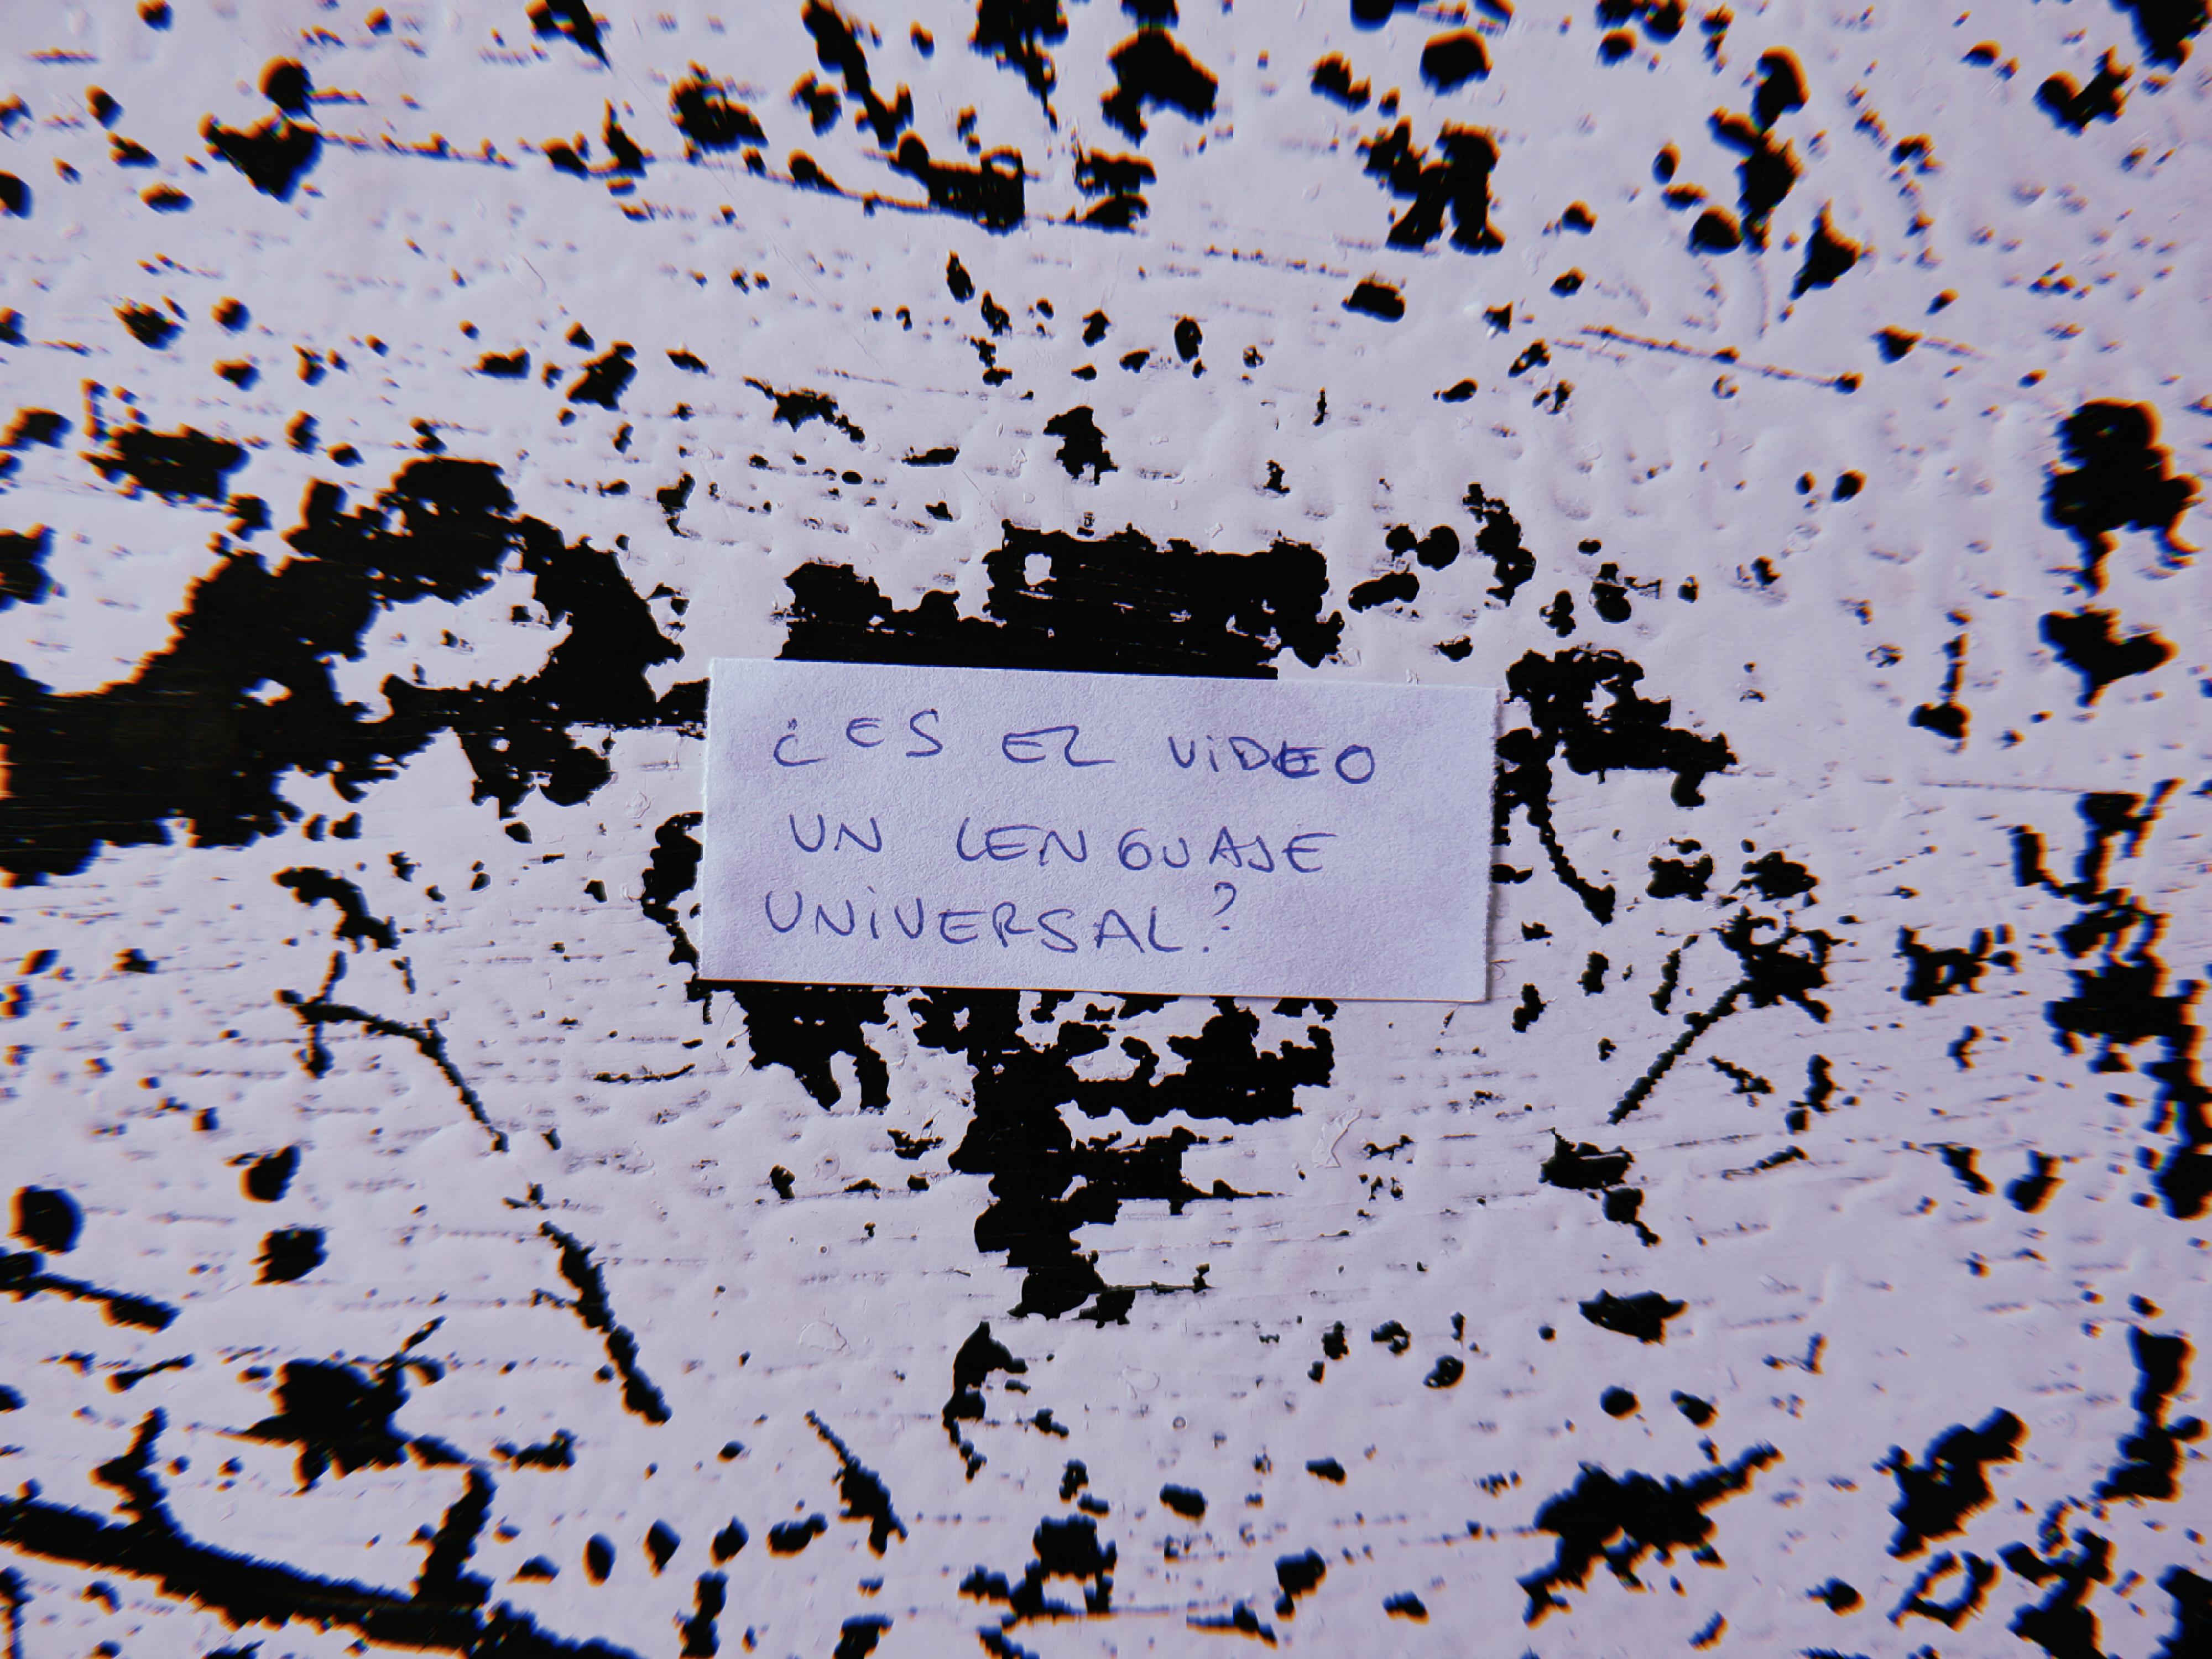 ¿ES EL VIDEO
UN LENGUAJE
UNIVERSAL?